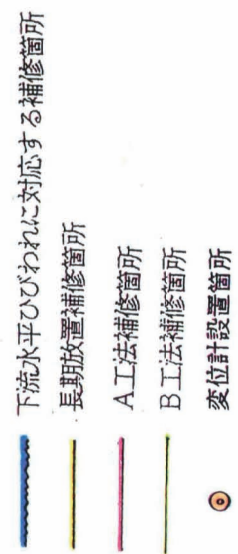 下流水平ひびわれに対応する補修箇所
長期放置補修箇所
A工法補修箇所
B工法補修箇所
変位計設置箇所